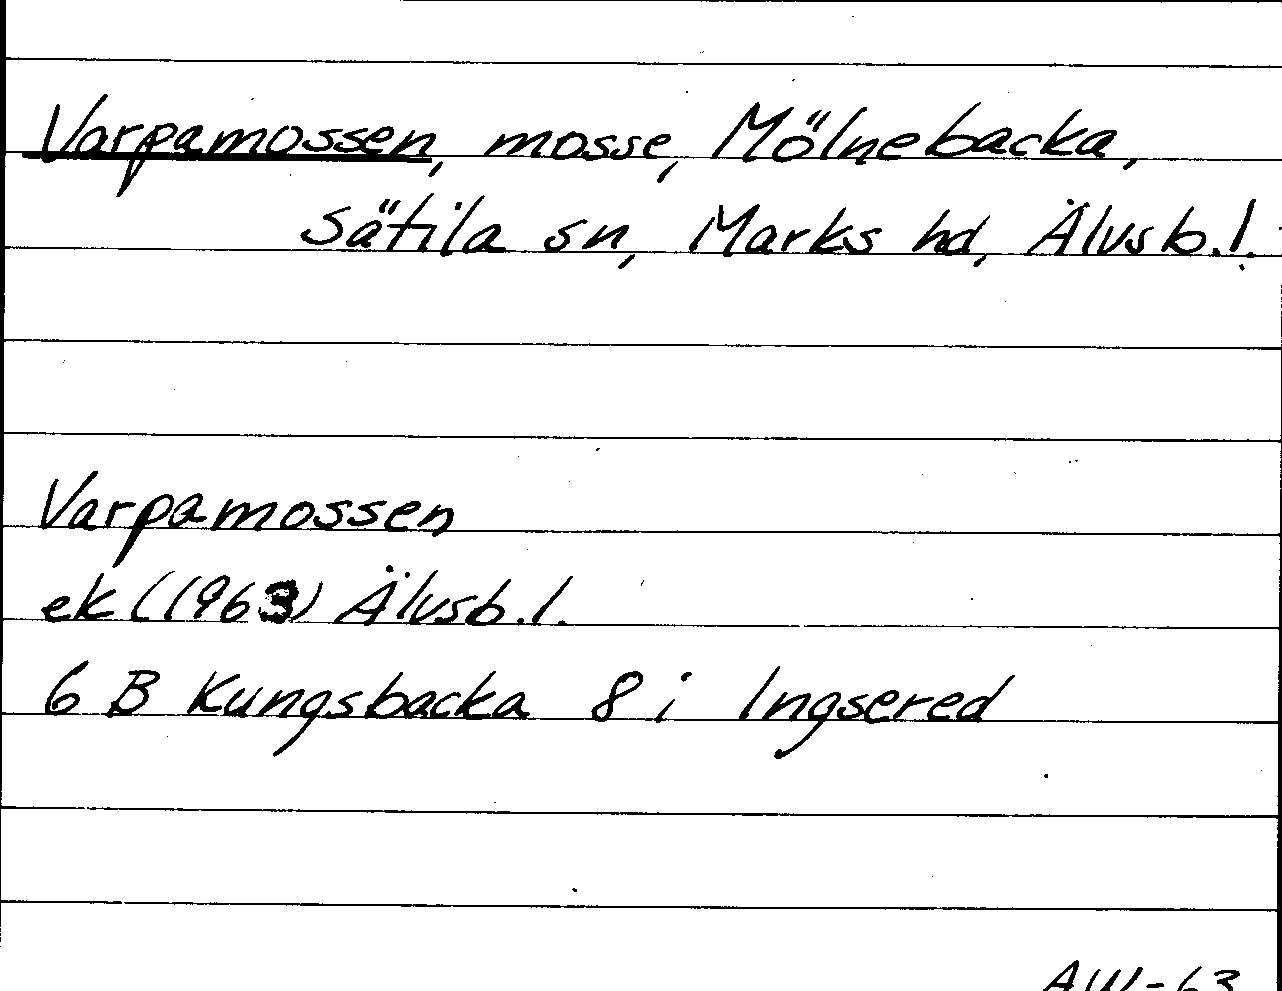 Varpamossen, mosse, Mölnebacka,
Sätila sn, Marks hd, Älvsb.l.
Varpamossen
ek (1963) Älvsb.l.
6 B Kungsbacka 8 i Ingsered
AW-63